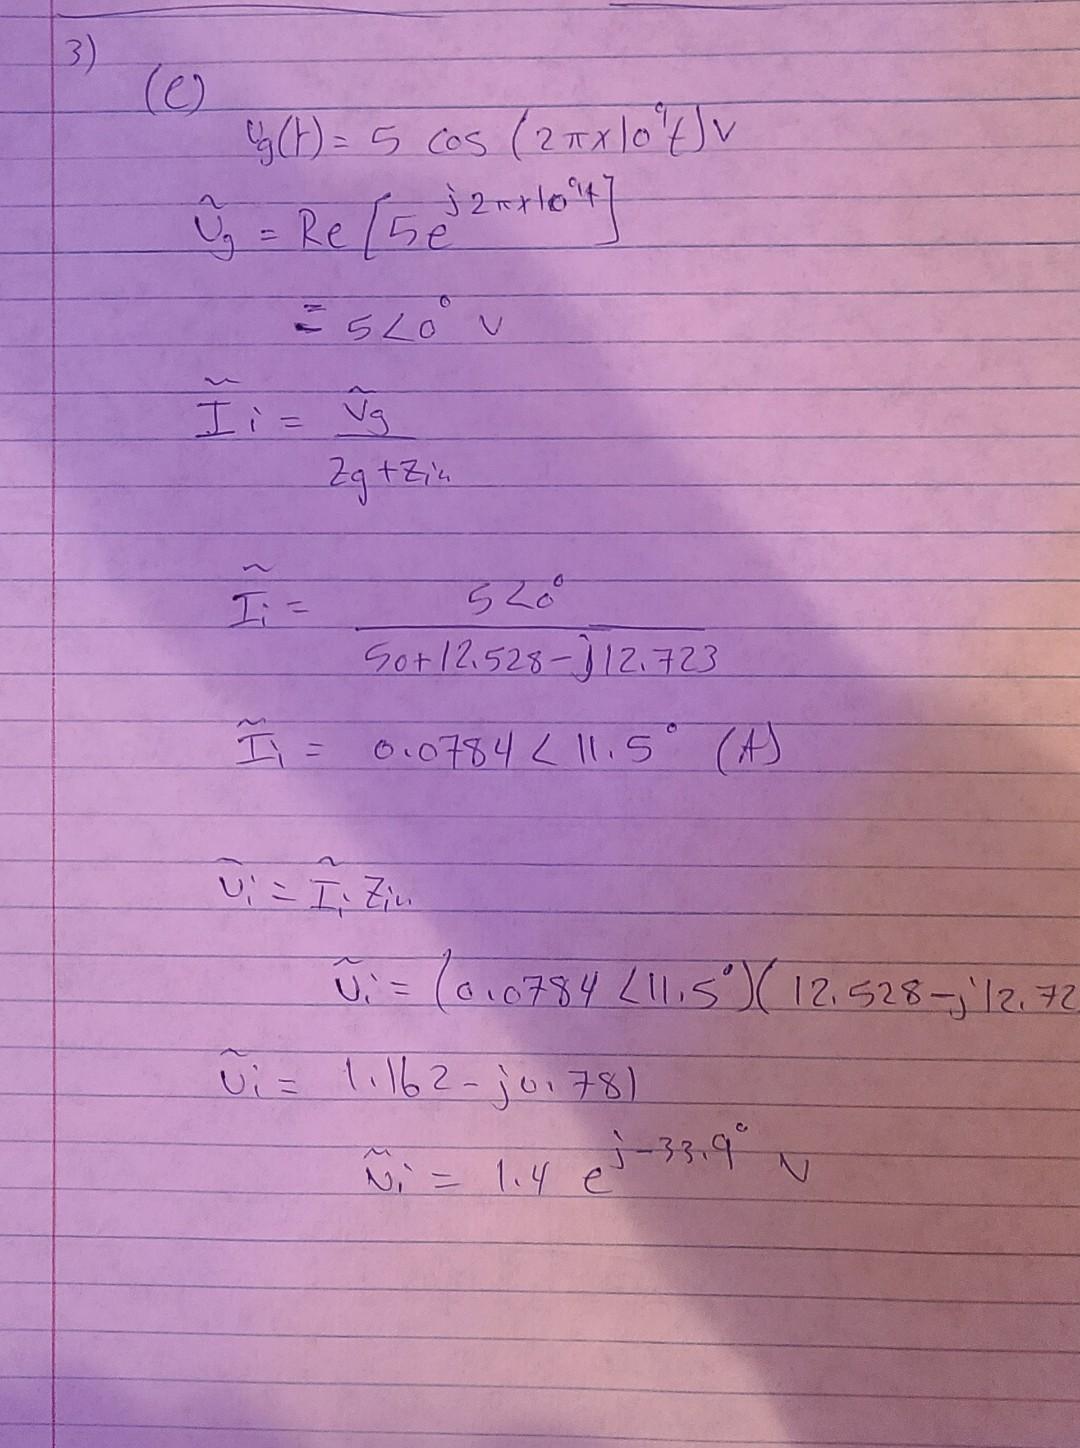 3)
(e)
vg(t) = 5 cos (2πx10⁹t) V
Ṽg = Re [5e^j2πx10⁹t]
= 5∠0° V
Ĩi = Ṽg / Zg + Zin
Ĩi = 5∠0° / 50+12.528-j12.723
Ĩi = 0.0784∠11.5° (A)
Ṽi = Ĩi Zin
Ṽi = (0.0784∠11.5°)(12.528-j12.72
Ṽi = 1.162-j0.781
Ṽi = 1.4 e^j-33.9° V